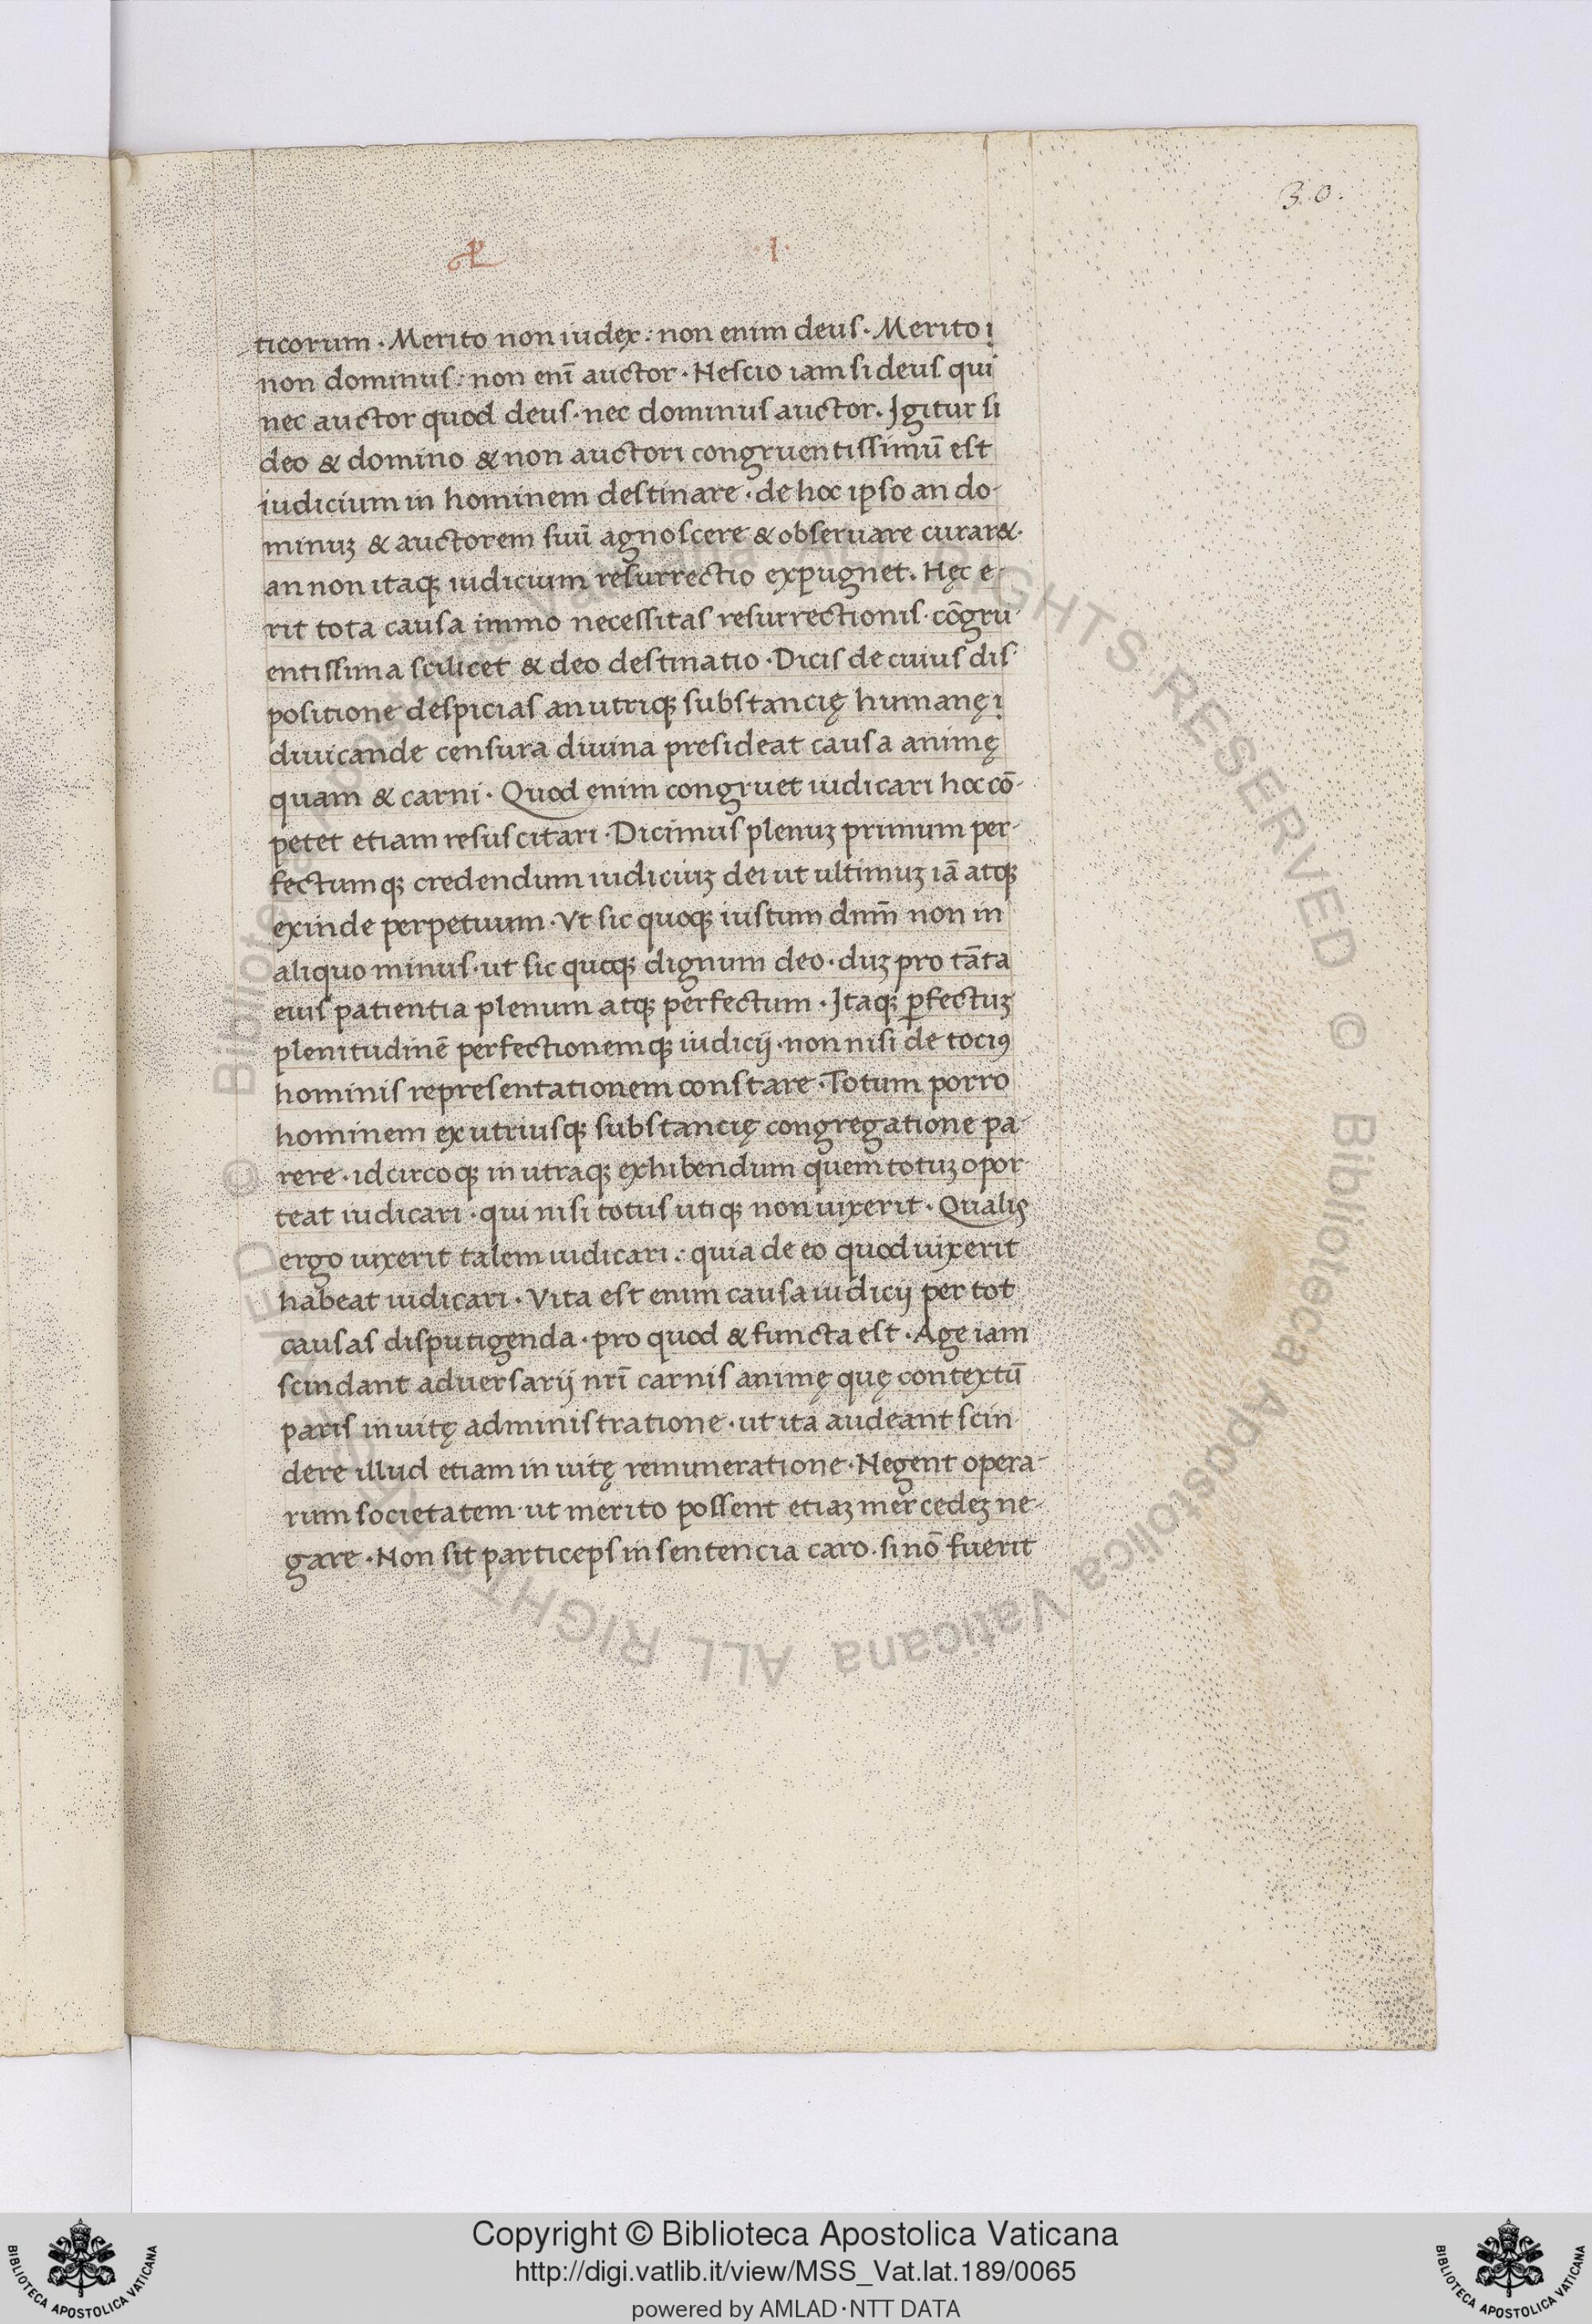 30.
·I·
ticorum · Merito non iudex : non enim deus · Merito ı
non dominus : non enī auctor · Nescio iam si deus qui
nec auctor quod deus · nec dominus auctor. Igitur si
deo & domino & non auctori congruentissimū est
iudicium in hominem destinare · de hoc ipso an do-
minuꝫ & auctorem suū agnoscere & obseruare curar&·
an non itaqꝫ iudicium resurrectio expugnet. Hęc e-
rit tota causa immo necessitas resurrectionis · cōgru-
entissima scilicet & deo destinatio · Dicis de cuius dis-
positione despicias an utriqꝫ substancię humanę ı
diuicande censura diuina presideat causa animę
quam & carni · Quod enim congruet iudicari hoc cō-
petet etiam resuscitari · Dicimus plenuꝫ primum per-
fectumqꝫ credendum iudiciuꝫ dei ut ultimuꝫ iā atqꝫ
exinde perpetuum · Vt sic quoqꝫ iustum dnm̄ non in
aliquo minus · ut sic quoqꝫ dignum deo · duꝫ pro tāta
eius patientia plenum atqꝫ perfectum · Itaqꝫ ꝑfectuꝫ
plenitudinē perfectionemqꝫ iudicij · non nisi de tociꝰ
hominis representationem constare · Totum porro
hominem ex utriusqꝫ substancię congregatione pa-
rere · idcircoqꝫ in utraqꝫ exhibendum quem totuꝫ opor-
teat iudicari · qui nisi totus utiqꝫ non uixerit · Qualis
ergo uixerit talem iudicari : quia de eo quod uixerit
habeat iudicari · Vita est enim causa iudicij per tot
causas disputigenda · pro quod & functa est · Age iam
scindant aduersarij nrī carnis animę quę contextū
paris in uitę administratione · ut ita audeant scin-
dere illud etiam in uitę remuneratione · Negent opera-
rum societatem · ut merito possent etiaꝫ mercedeꝫ ne-
gare · Non sit particeps in sentencia caro · si nō fuerit
Copyright © Biblioteca Apostolica Vaticana
http://digi.vatlib.it/view/MSS_Vat.lat.189/0065
powered by AMLAD·NTT DATA